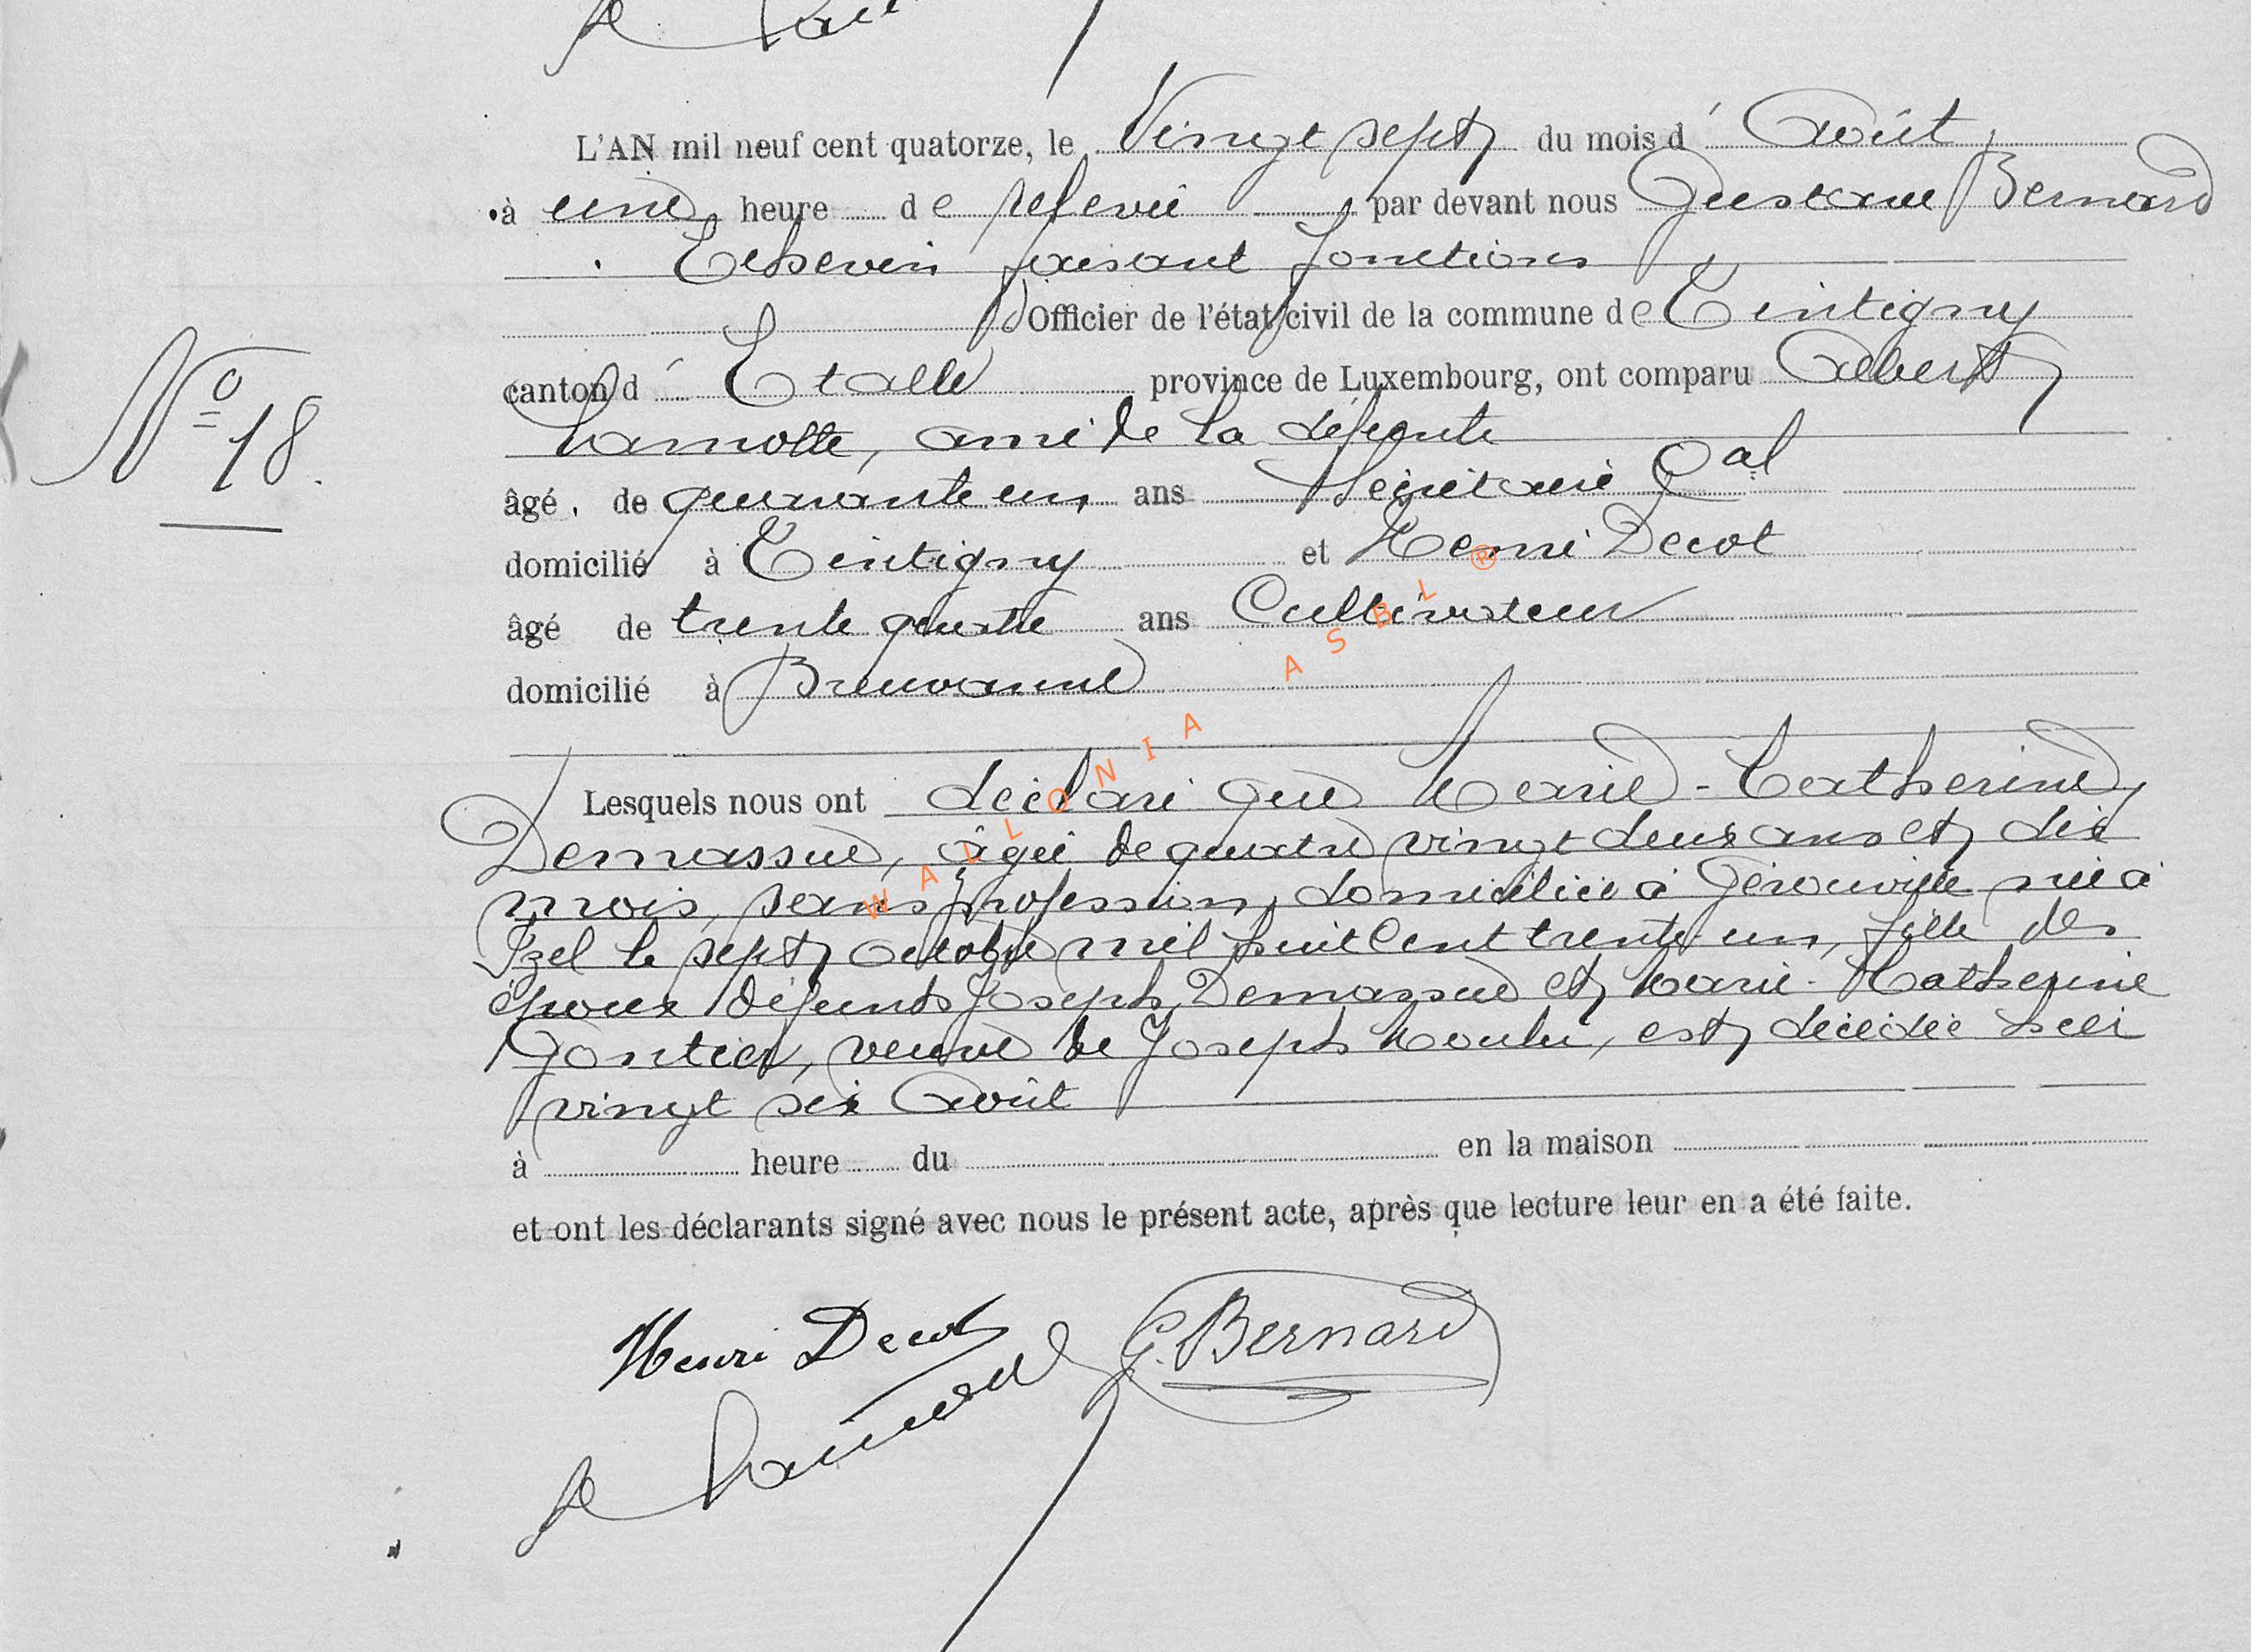 L'AN mil neuf cent quatorze, le Vingt sept du mois d' Août
à une heure de relevée par devant nous Gustave Bernard
Echevin faisant fonctions
d'Officier de l'état civil de la commune de Tintigny
canton d' Etalle province de Luxembourg, ont comparu Albert
Lamotte, ami de la défunte
N° 18.
âgé de quarante un ans Secrétaire Cal
domicilié à Tintigny et Henri Decot
âgé de trente quatre ans Cultivateur
domicilié à Breuvanne
Lesquels nous ont déclaré que Marie-Catherine
Demassue, âgée de quatre vingt deux ans et dix
mois, sans profession, domiciliée à Gérouville née à
Izel le sept octobre mil huit cent trente un, fille des
époux défunts Joseph Demassue et Marie-Catherine
Gontier, veuve de Joseph Moulu, est décédée hier
vingt six Août
à heure du en la maison
et ont les déclarants signé avec nous le présent acte, après que lecture leur en a été faite.
Henri Decot G. Bernard
A Lamotte
WALLONIA ASBL ®